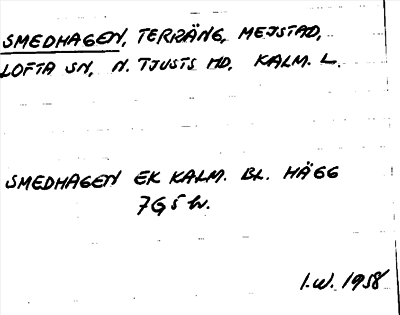 SMEDHAGEN, TERRÄNG, MEJSTAD,
LOFTA SN, N. TJUSTS HD, KALM. L.
SMEDHAGEN EK KALM. BL. HÄGG
7G5W.
I.W. 1958